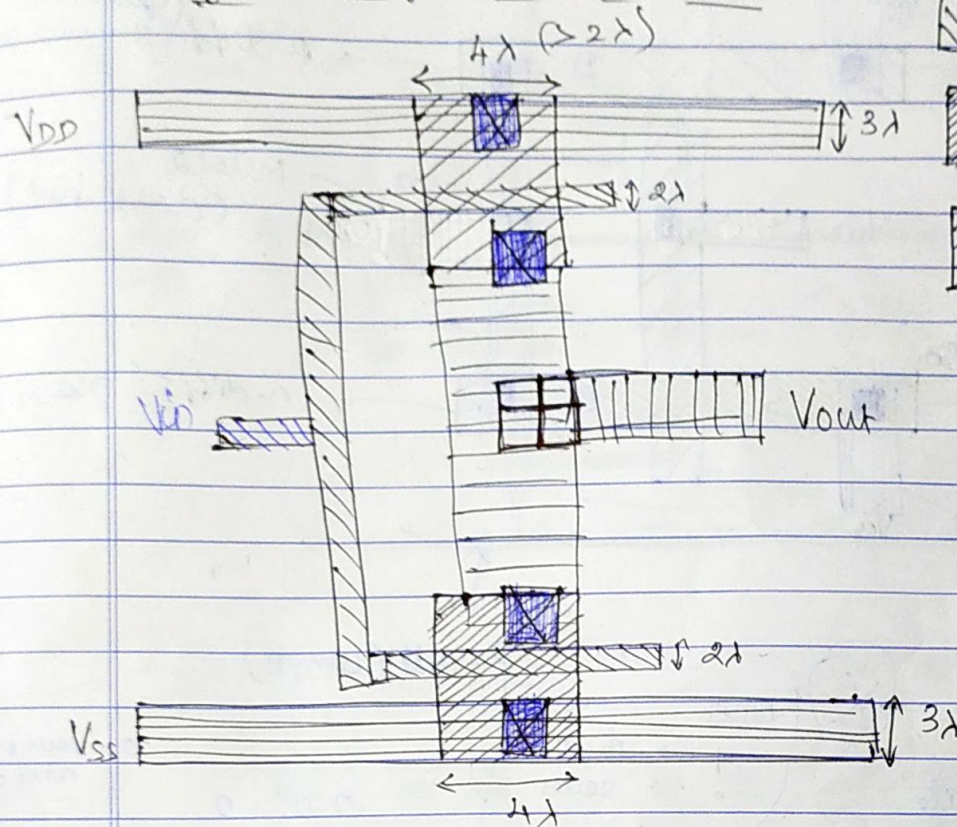 4λ (>2λ)
VDD
3λ
2λ
Vin
Vout
2λ
VSS
3λ
4λ